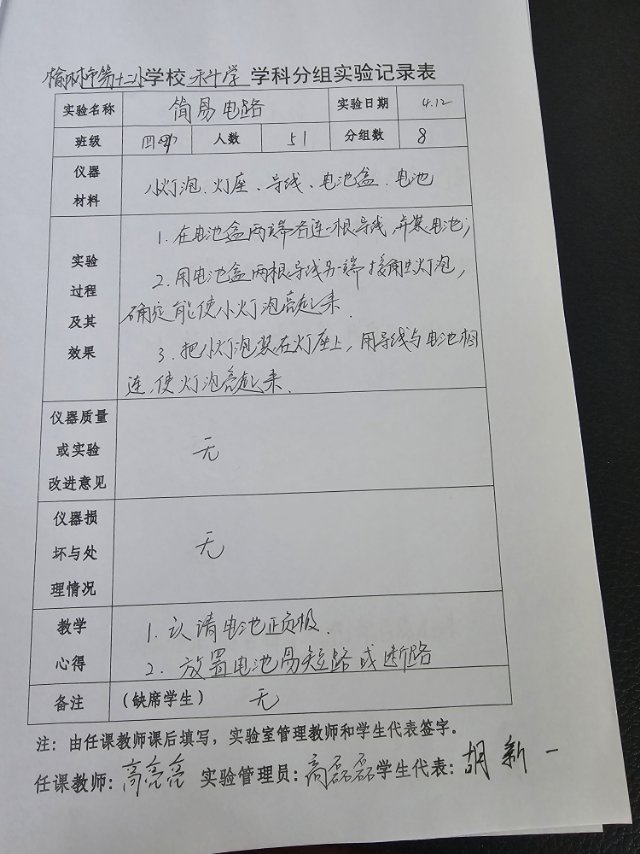 榆林市第十二小学校 科学 学科分组实验记录表
实验名称 简易电路 实验日期 4.12
班级 四4 人数 51 分组数 8
仪器材料 小灯泡、灯座、导线、电池盒、电池
实验过程及其效果
1. 在电池盒两端各连一根导线,并装电池;
2. 用电池盒两根导线另一端接触灯泡,
确定能使小灯泡亮起来.
3. 把小灯泡装在灯座上,用导线与电池相
连,使灯泡亮起来.
仪器质量或实验改进意见 无
仪器损坏与处理情况 无
教学心得
1. 认请电池正负极.
2. 放置电池易短路或断路
备注 (缺席学生) 无
注:由任课教师课后填写,实验室管理教师和学生代表签字。
任课教师:高亮亮 实验管理员:高磊磊 学生代表:胡新一